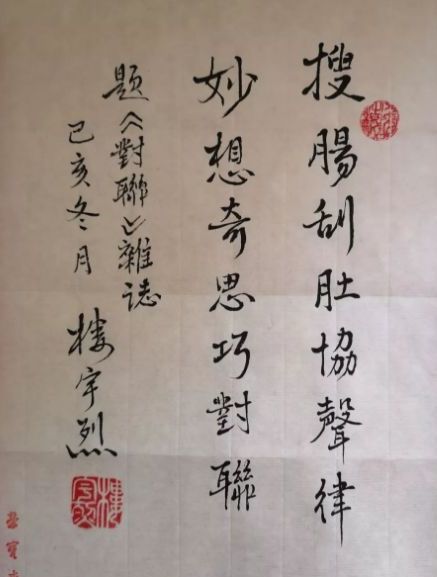 搜腸刮肚協聲律
妙想奇思巧對聯
題《對聯》雜誌
已亥冬月
樓宇烈